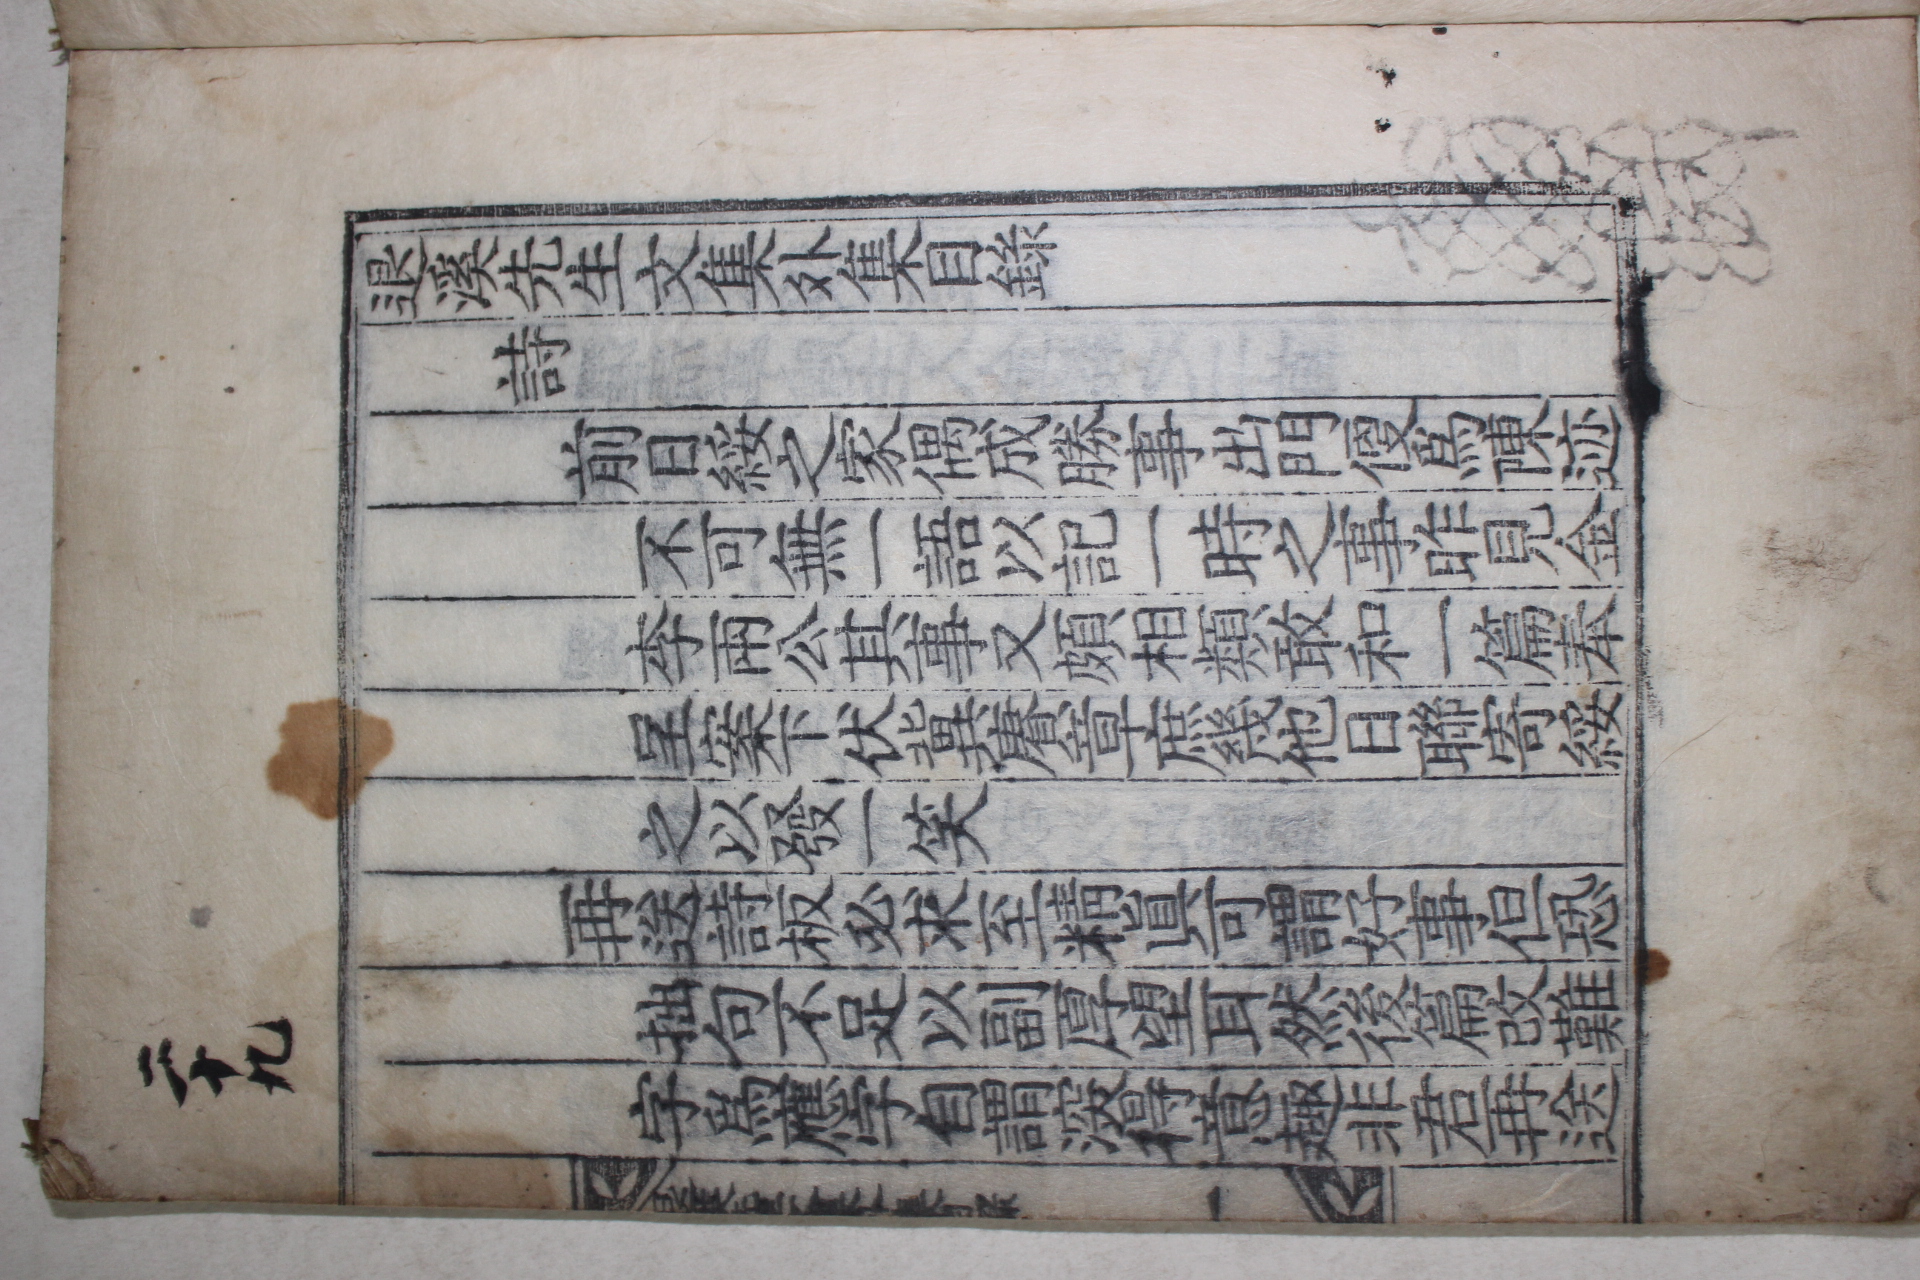 退溪先生文集外集目錄
詩
前日綏之家偶成勝事出門便爲陳迹
不可無一語以記一時之事昨見金
李兩公其事又頗相類敢和一篇奉
呈案下伏冀賡章庶幾他日聯寄綏
之以發一笑
再送詩板必求至精愼可謂好事但恐
拙句不足以副厚望耳然後篇改難
字爲應字自謂深得意趣非吾再送
二十九